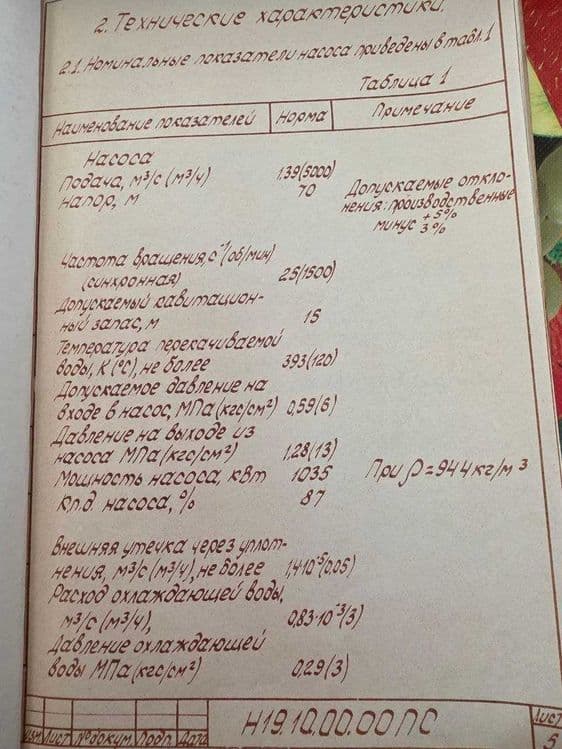 2. Технические характеристики.
2.1. Номинальные показатели насоса приведены в табл. 1
Таблица 1
Наименование показателей Норма Примечание
Насоса
Подача, м³/с (м³/ч) 1.39(5000)
Напор, м 70 Допускаемые откло-
нения: производственные
+ 5%
минус 3%
Частота вращения, с⁻¹ (об/мин)
(синхронная) 25(1500)
Допускаемый кавитацион-
ный запас, м 15
Температура перекачиваемой
воды, К (°С), не более 393(120)
Допускаемое давление на
входе в насос, МПа (кгс/см²) 0,59(6)
Давление на выходе из
насоса МПа (кгс/см²) 1,28(13)
Мощность насоса, квт 1035 При ρ=944 кг/м³
К.п.д. насоса, % 87
Внешняя утечка через уплот-
нения, м³/с (м³/ч), не более 1,4·10⁻⁵(0,05)
Расход охлаждающей воды,
м³/с (м³/ч), 0,83·10⁻³(3)
Давление охлаждающей
воды МПа (кгс/см²) 0,29(3)
Н19.10.00.00 ПС
Изм Лист №докум. Подп. Дата
Лист
5